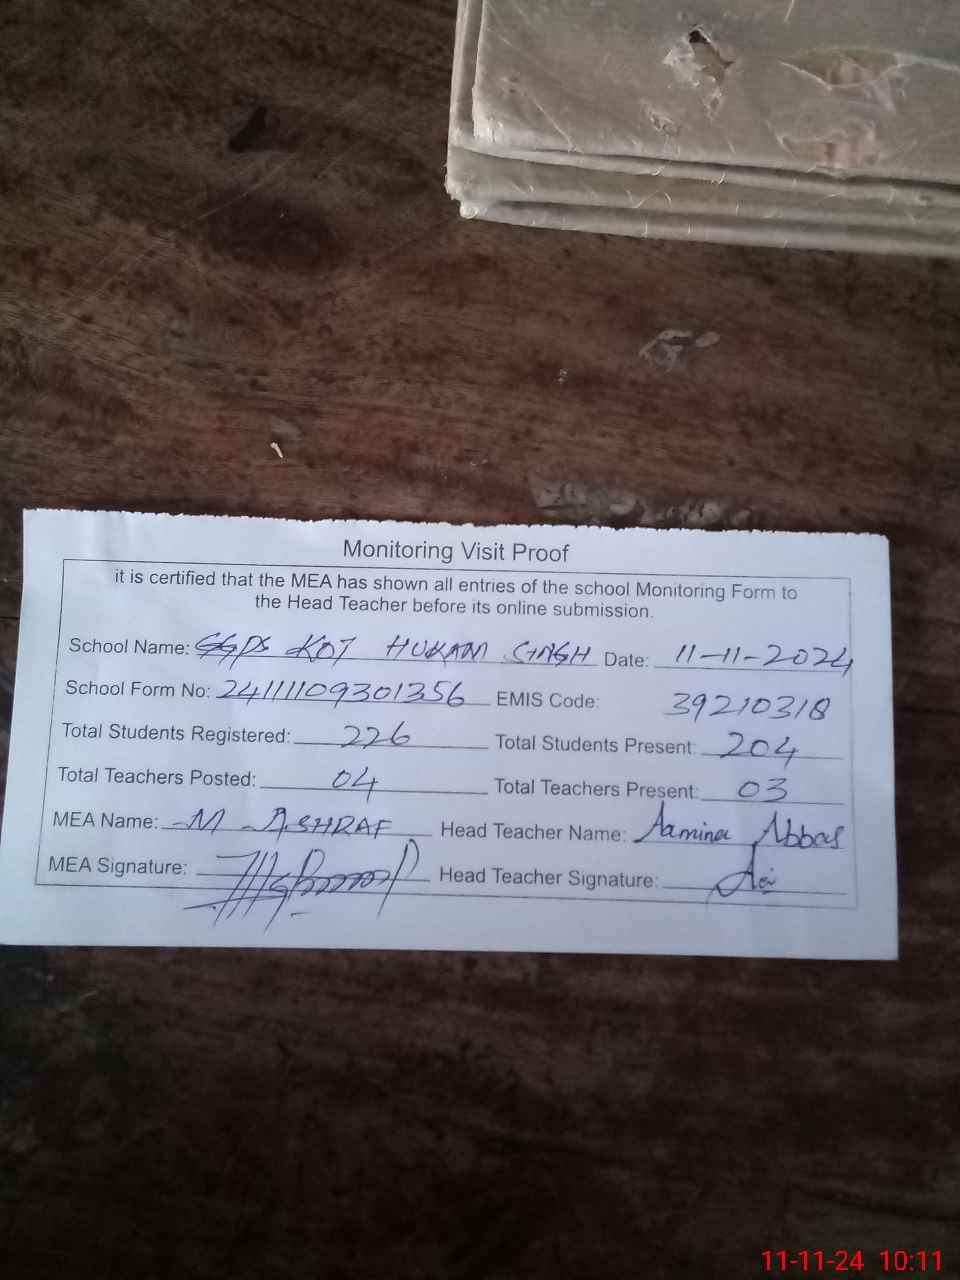 Monitoring Visit Proof
it is certified that the MEA has shown all entries of the school Monitoring Form to
the Head Teacher before its online submission.
School Name: GGPS KOT HUKAM SINGH Date: 11-11-2024
School Form No: 24111109301356 EMIS Code: 39210318
Total Students Registered: 226 Total Students Present: 204
Total Teachers Posted: 04 Total Teachers Present: 03
MEA Name: M ASHRAF Head Teacher Name: Aamina Abbas
MEA Signature: Head Teacher Signature:
11-11-24 10:11